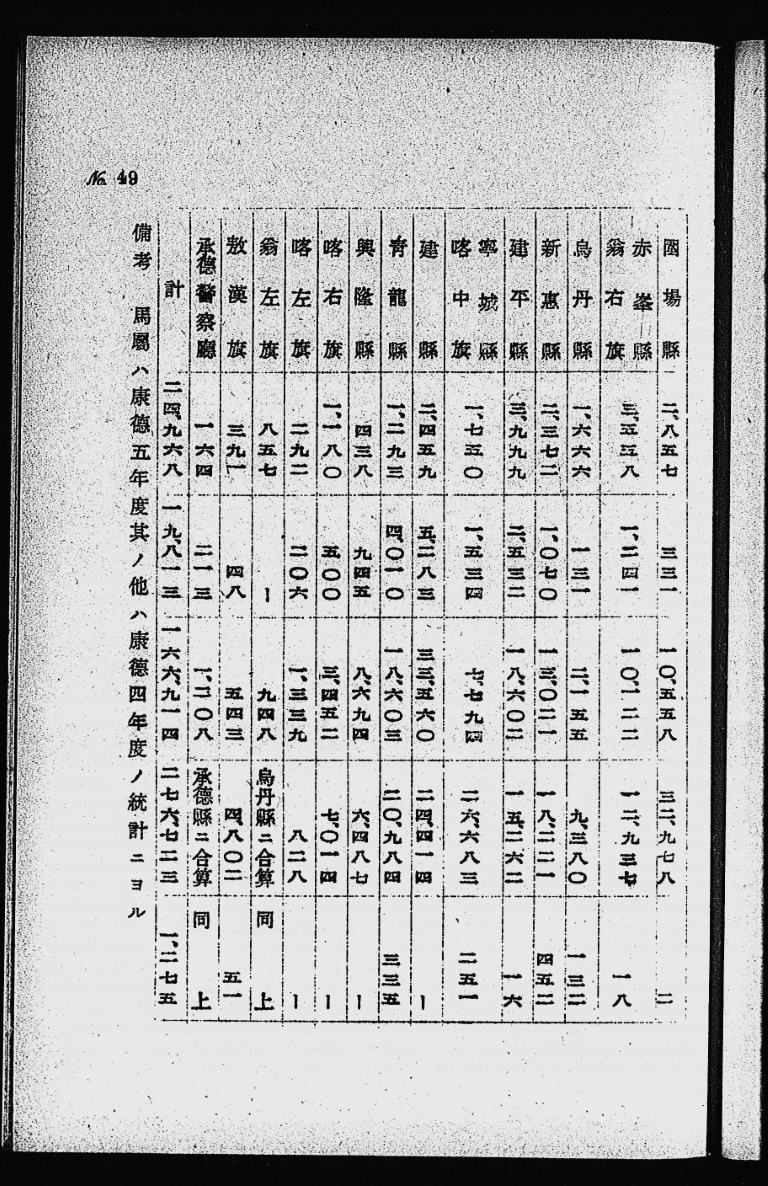 No. 49
圍場縣 二、八五七 三三一 一〇、五五八 三二、九七八 二
赤峯縣
翁右旗 三、五五八 一、二四一 一〇、一二二 一二、九三七 一八
烏丹縣 一、六六六 一三一 二、一五五 九、三八〇 一三二
新惠縣 二、三七二 一、〇七〇 一三、〇二一 一八、二二一 四五二
建平縣 三、九九九 二、五三二 一八、六〇二 一五、二六二 一六
寧城縣
喀中旗 一、七五〇 一、五三四 七、七九四 二六、六八三 二五一
建 縣 二、四五九 五、二八三 三三、五六〇 二四、四一四 ー
青龍縣 一、二九三 四、〇一〇 一八、六〇三 二〇、九八四 三三五
興隆縣 四三八 九四五 八、六九四 六、四八七 ー
喀右旗 一、一八〇 五〇〇 三、四五二 七、〇一四 ー
喀左旗 二九二 二〇六 一、三三九 八二八 ー
翁左旗 八五七 ー 九四八 烏丹縣ニ合算 同上
敖漢旗 三九一 四八 五四三 四、八〇二 五一
承德警察廳 一六四 二一三 一、二〇八 承德縣ニ合算 同上
計 二四、九六八 一九、八一三 一六六、九一四 二七六、七二三 一、二七五
備考 馬屬ハ康德五年度其ノ他ハ康德四年度ノ統計ニヨル